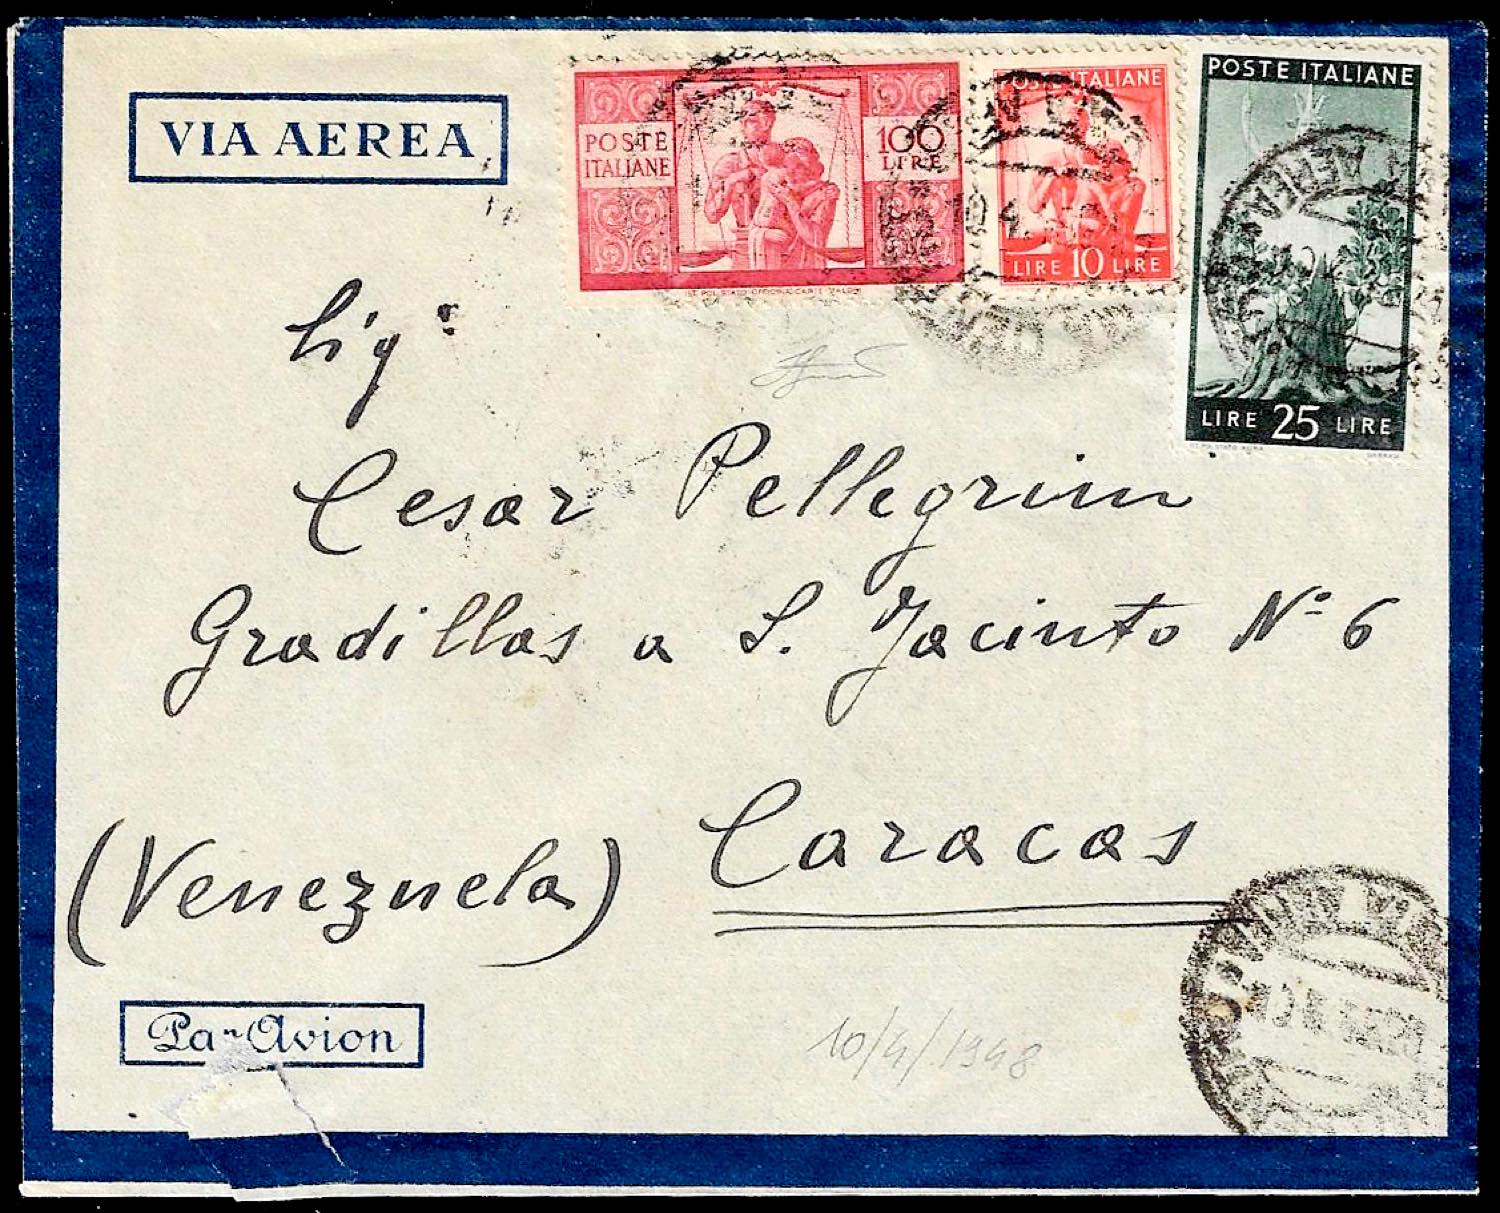 VIA AEREA
POSTE ITALIANE
100 LIRE
POSTE ITALIANE
LIRE 10 LIRE
POSTE ITALIANE
LIRE 25 LIRE
Sig.
Cesar Pellegrini
Gradillas a S. Jacinto Nº 6
Caracas
(Venezuela)
Par Avion
10/4/1948